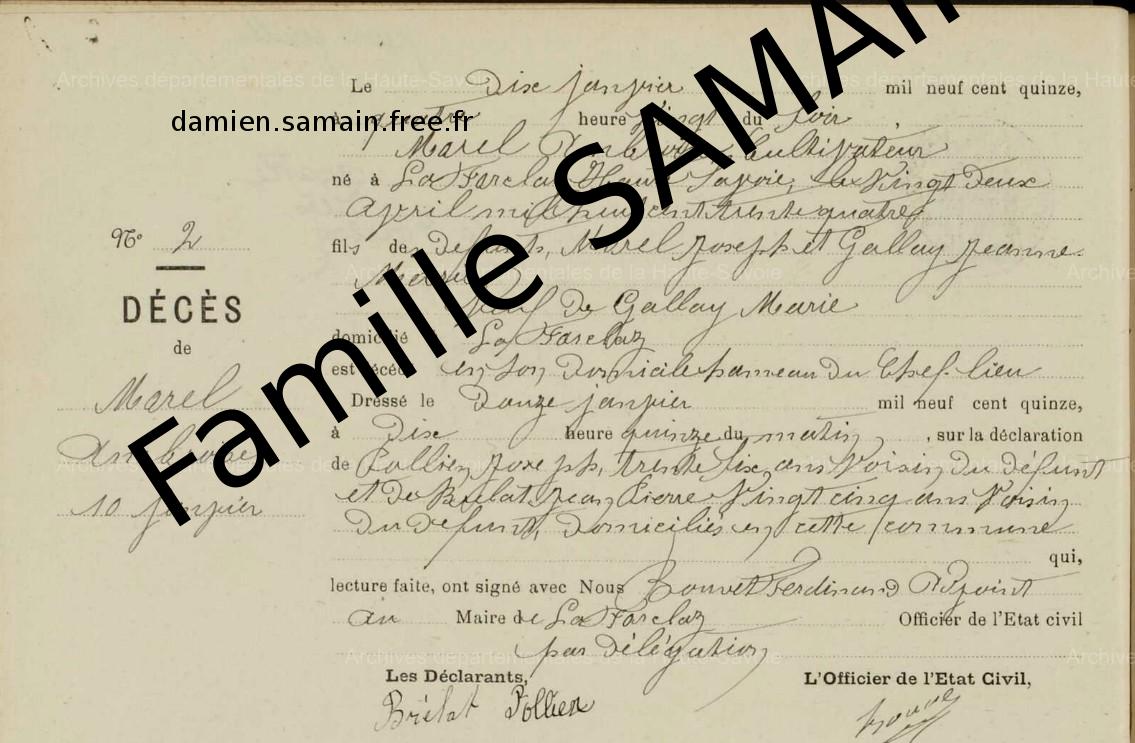 Famille SAMAIN
damien.samain.free.fr
Archives départementales de la Haute-Savoie
Le Dix janvier mil neuf cent quinze,
à quatre heure vingt du soir,
Marel Ambroise, Cultivateur
né à La Forclaz Haute Savoie, le Vingt Deux
Avril mil huit cent trente quatre,
fils de Défunts, Marel Joseph et Gallay Jeanne
Marie
Veuf De Gallay Marie
domicilié La Forclaz
est décédé en son Domicile hameau du Chef-lieu
Dressé le Douze janvier mil neuf cent quinze,
à Dix heure quinze du matin, sur la déclaration
de Pollien Joseph, trente six ans Voisin Du défunt
et de Brélat Jean Pierre Vingt cinq ans Voisin
Du Défunt, Domiciliés en cette commune
qui,
lecture faite, ont signé avec Nous Bouvet Ferdinand Adjoint
au Maire de La Forclaz Officier de l'Etat civil
par Délégation
Les Déclarants, L'Officier de l'Etat Civil,
Brélat Pollien
No 2
DÉCÈS
de
Marel
Ambroise
10 janvier